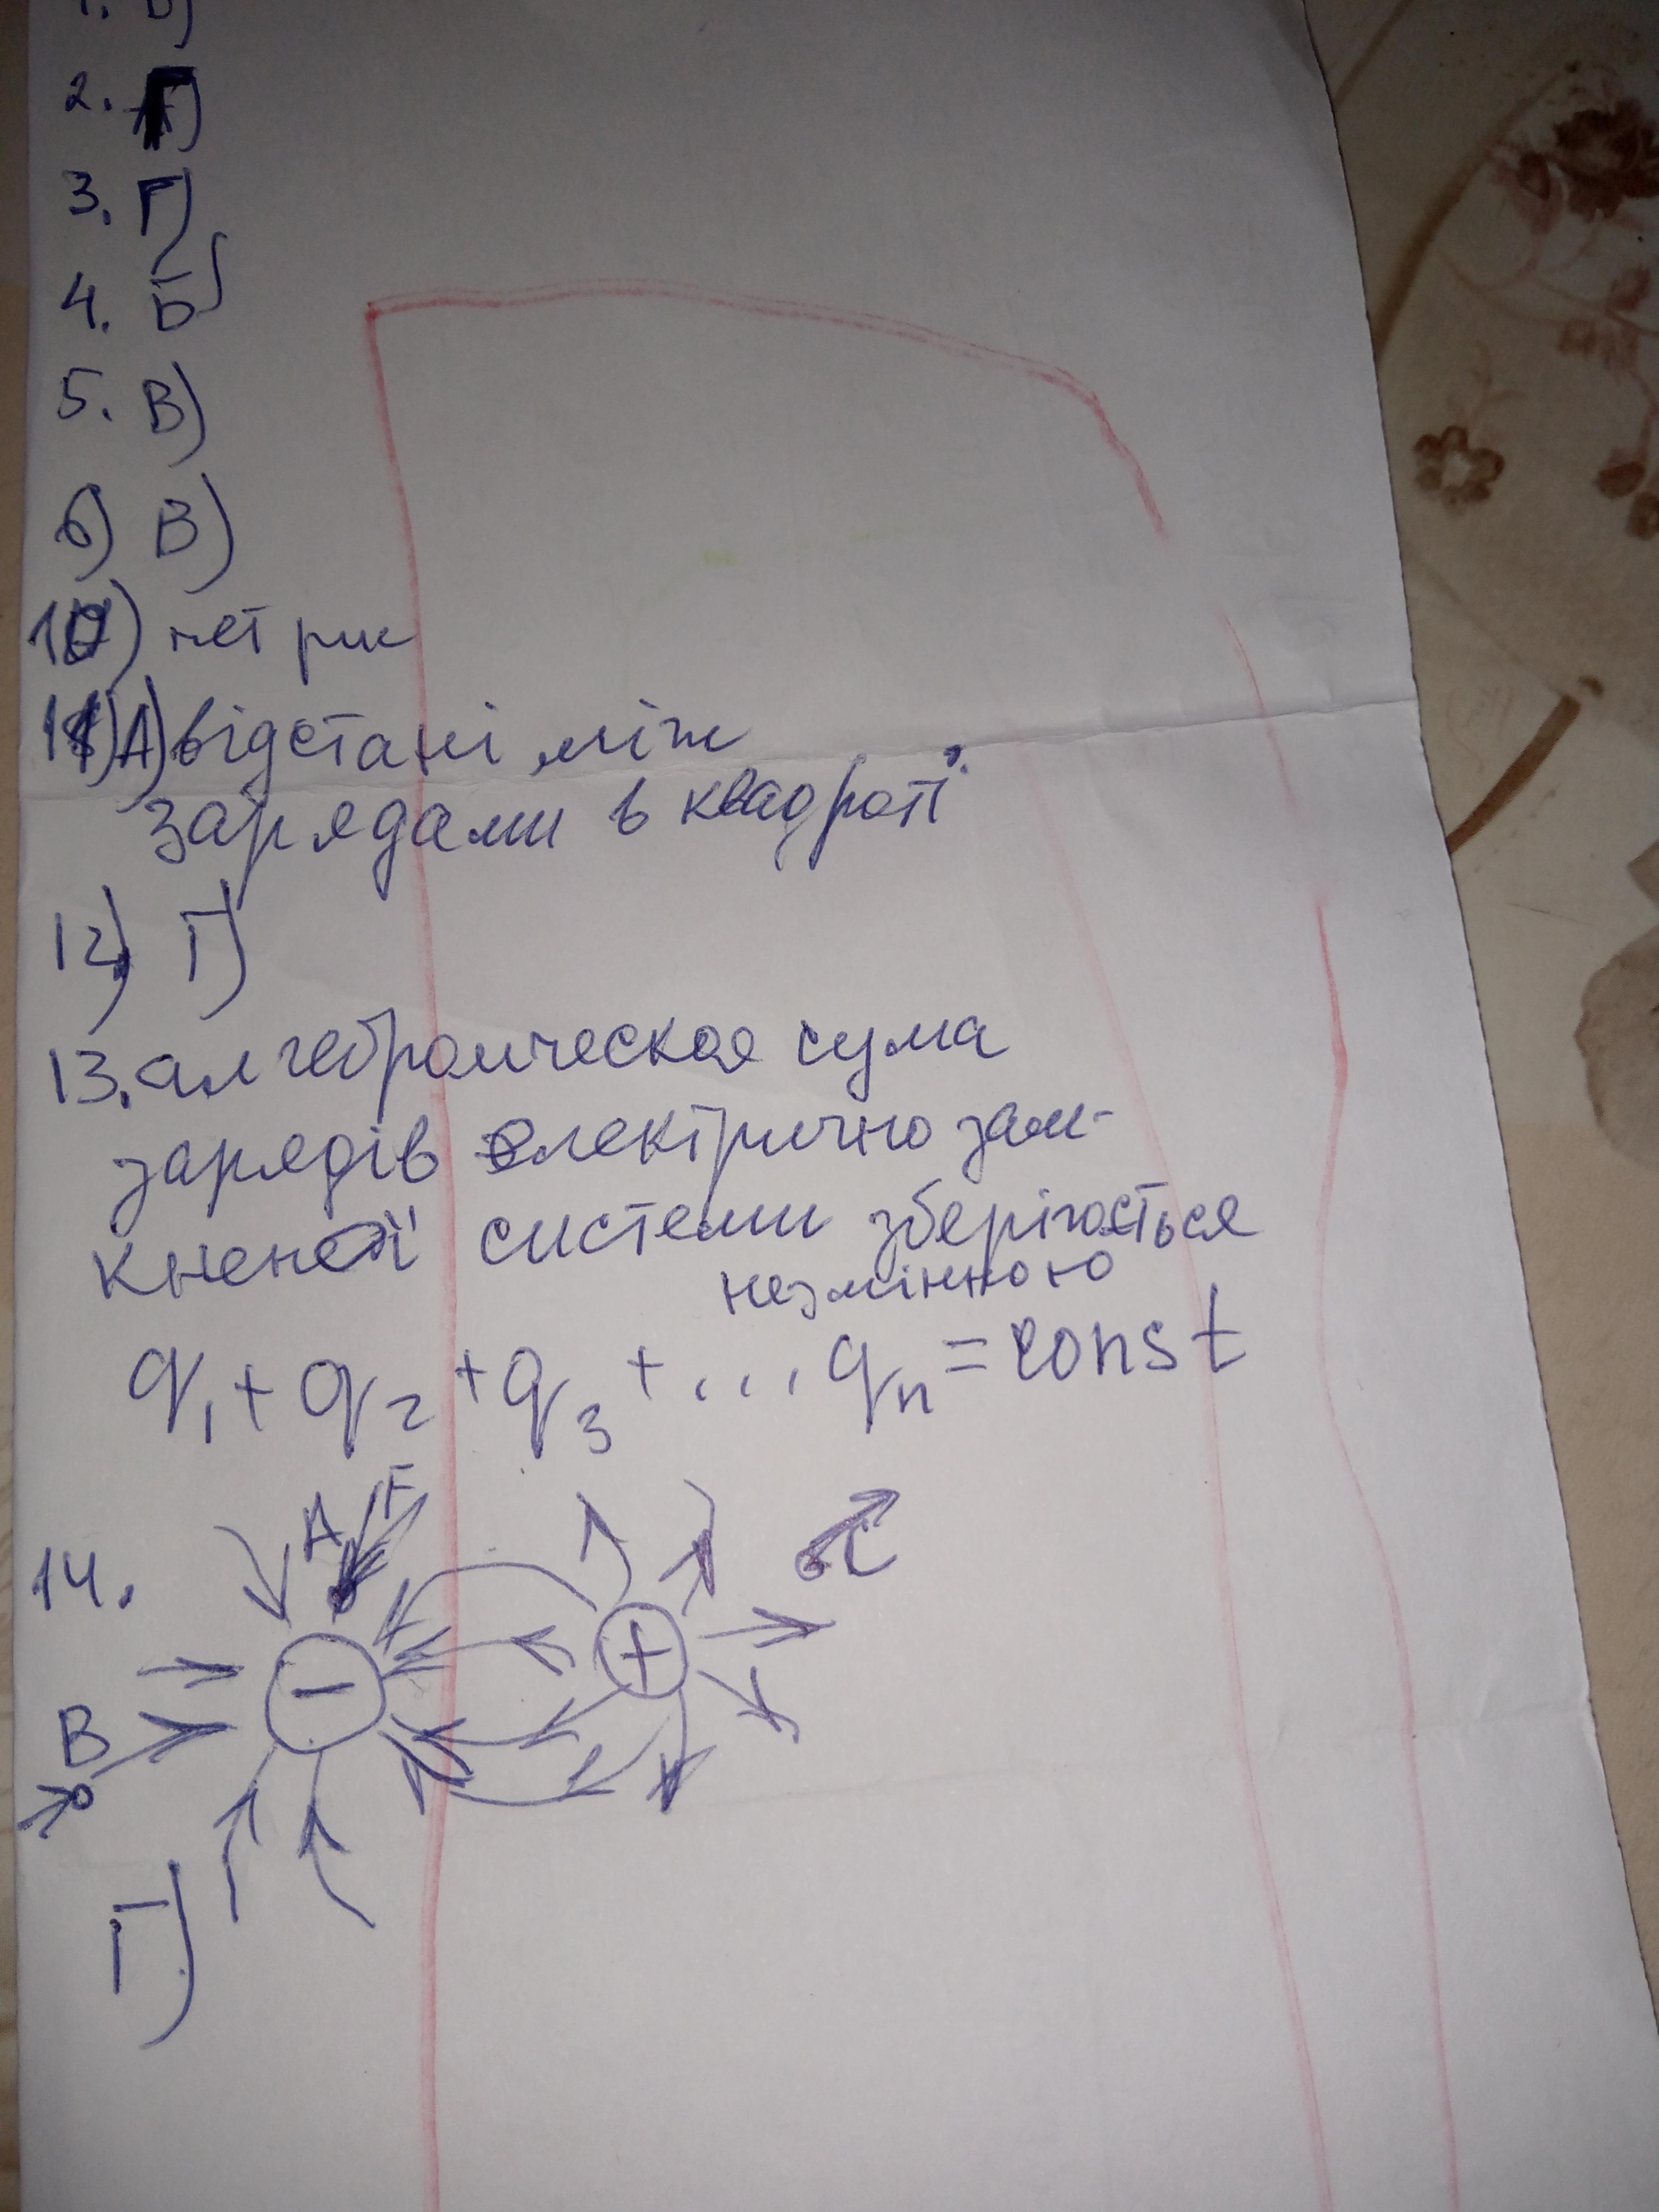 1. Б)
2. Г)
3. Г)
4. Б)
5. В)
6) В)
10) нет рис
11) А) відстані між
зарядами в квадраті.
12) Г)
13. алгебраическая сума
зарядів електрично зам-
кненої системи зберігається
незмінною
q₁ + q₂ + q₃ + ... qₙ = const
14.
A F
C
− +
B
Г)